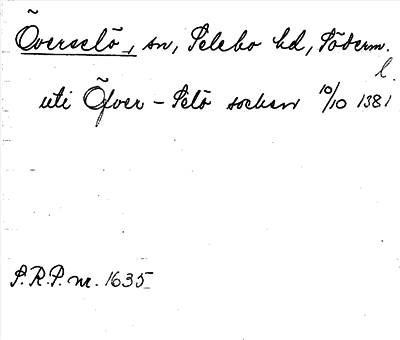 Överselö, sn, Selebo hd, Söderm.
l.
uti Öfver-Selö socken 10/10 1381
S.R.P. nr. 1635